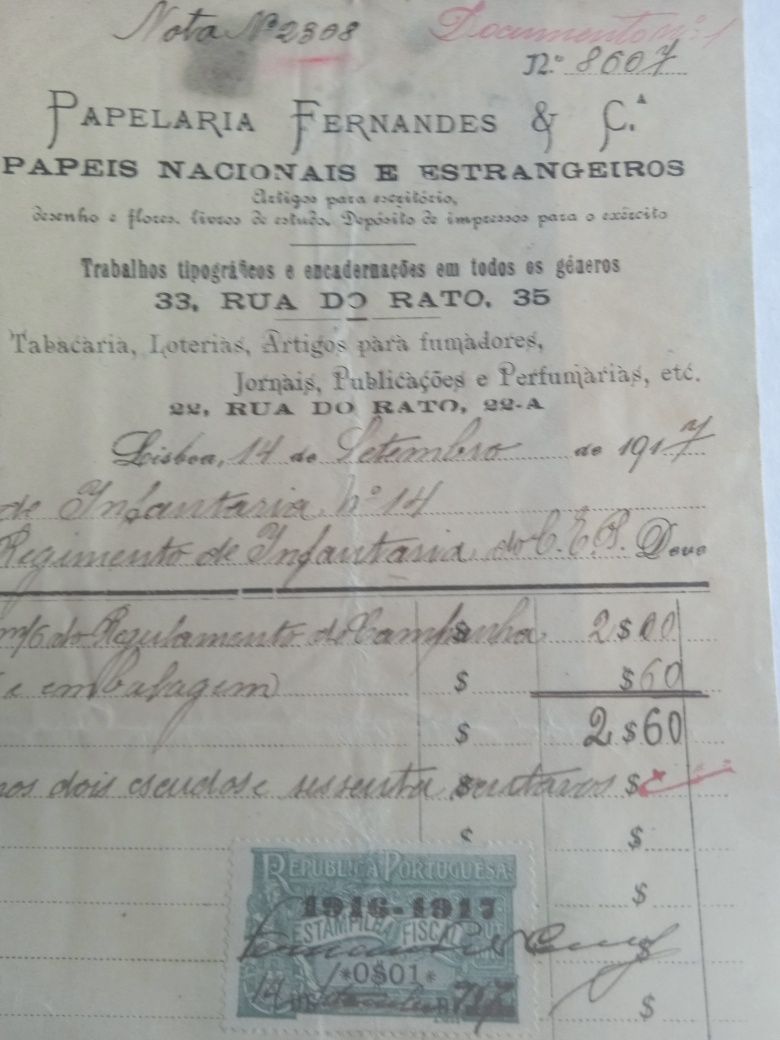 Nota Nº 2308 Documento nº 1
N.º 8607
PAPELARIA FERNANDES & C.ª
PAPEIS NACIONAIS E ESTRANGEIROS
Artigos para escritório,
desenho e flores, livros de estudo. Depósito de impressos para o exército
Trabalhos tipográficos e encadernações em todos os géneros
33, RUA DO RATO, 35
Tabacaria, Loterias, Artigos para fumadores,
Jornais, Publicações e Perfumarias, etc.
22, RUA DO RATO, 22-A
Lisboa, 14 de Setembro de 1917
de Infantaria nº 14
Regimento de Infantaria do C. E. P. Deve
do Regulamento de Campanha $ 2$00
e embalagem $ $60
$ 2$60
dois escudos e sessenta centavos $ $
$ $
$
REPUBLICA PORTUGUESA
1916-1917
ESTAMPILHA FISCAL
$
*0$01*
14 917
$